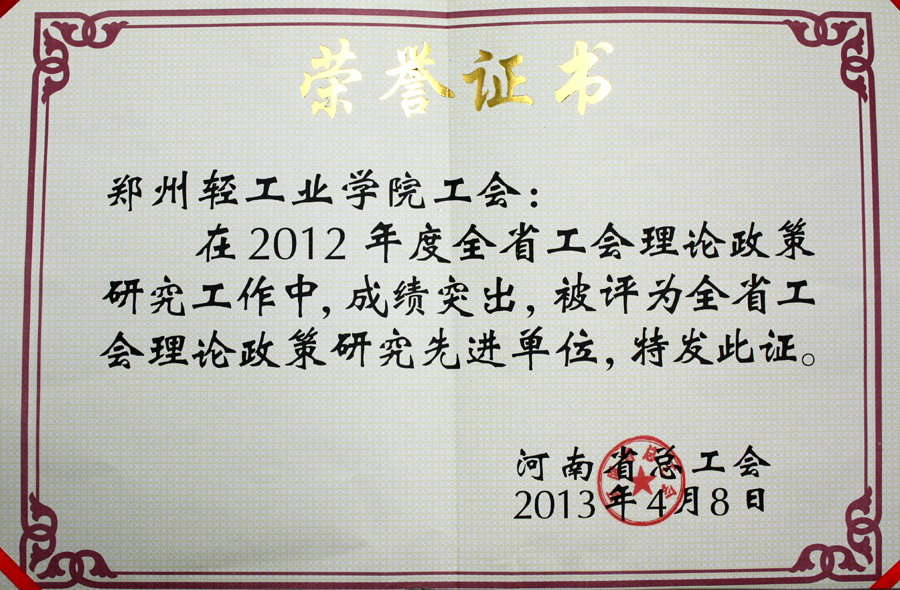 荣誉证书
郑州轻工业学院工会：
在2012年度全省工会理论政策
研究工作中，成绩突出，被评为全省工
会理论政策研究先进单位，特发此证。
河南省总工会
2013年4月8日